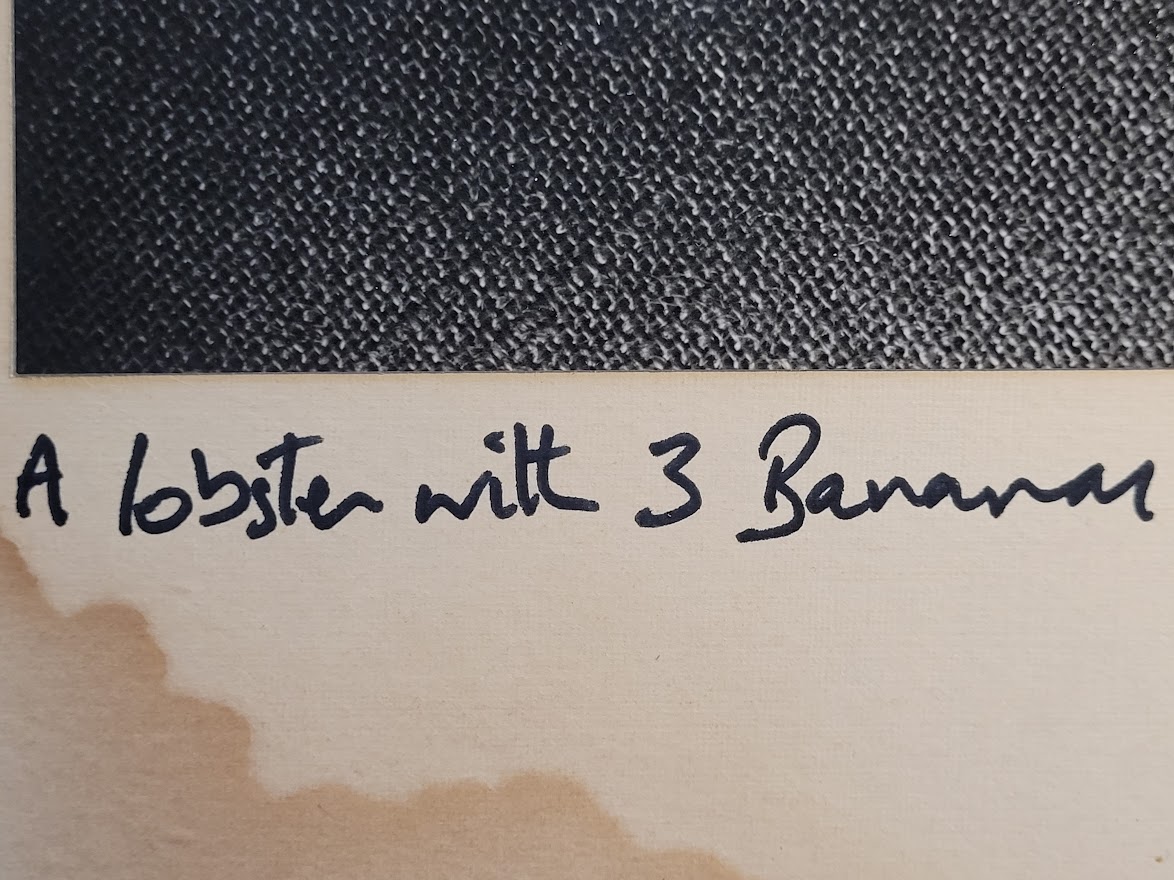 A lobster with 3 Bananas